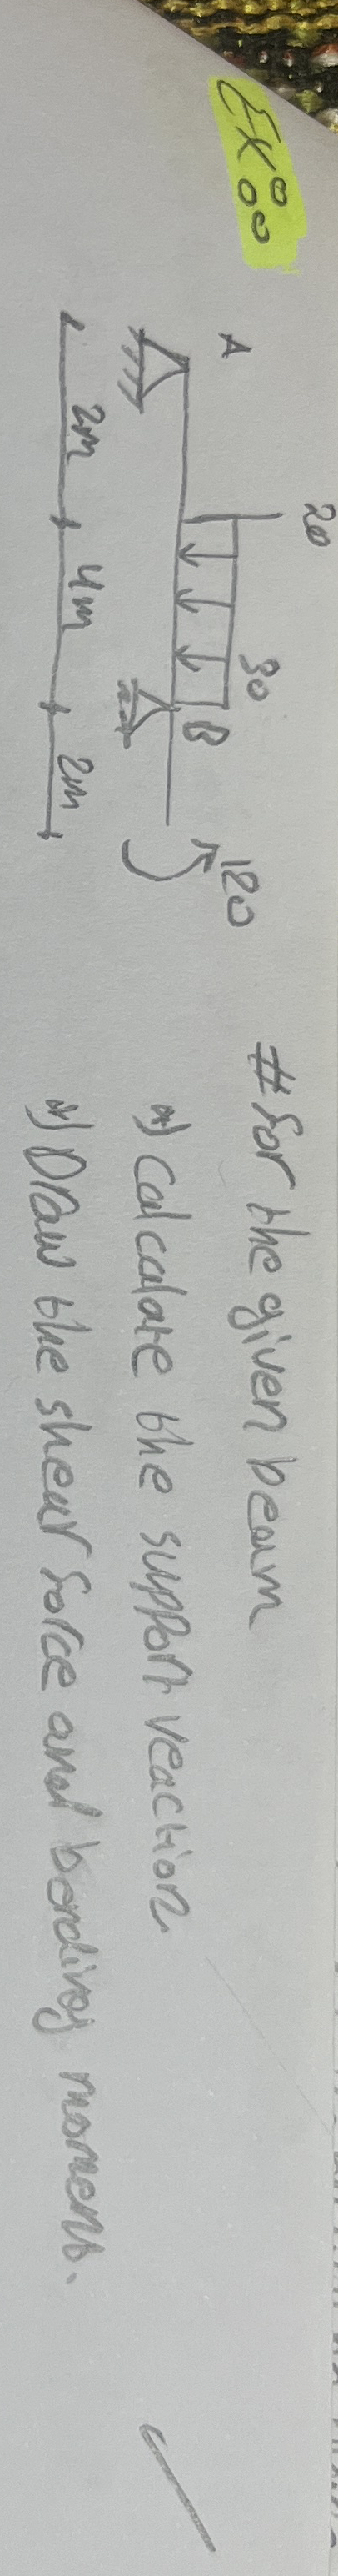 Ex:
20
30
120
A
B
2m 4m 2m
# for the given beam
*) calcalate the support reaction
*) Draw the shear force and bending moment.